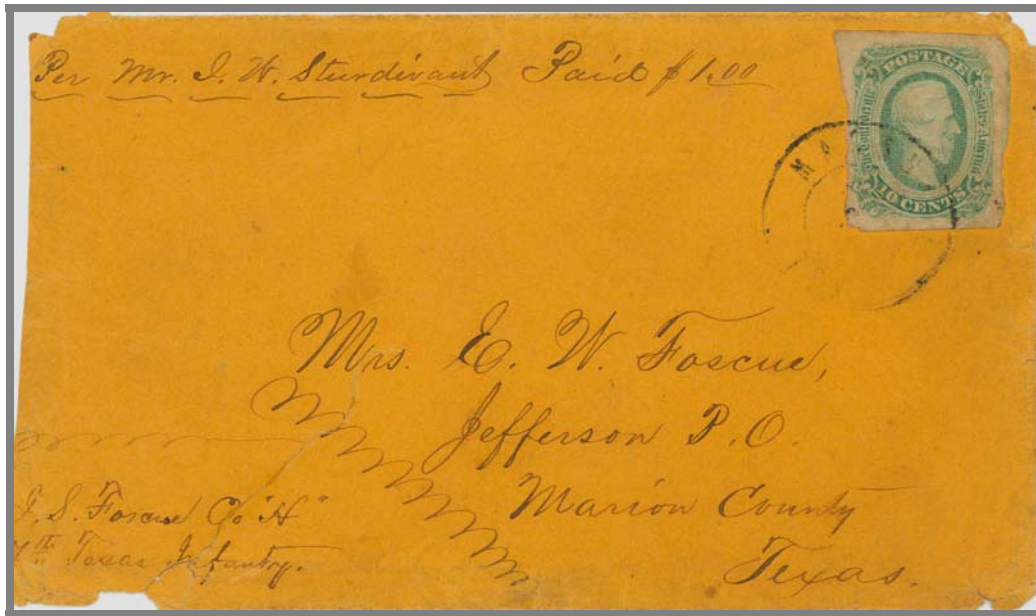 Per Mr. J. W. Sturdivant Paid $1.00
POSTAGE
The Confederate States of America
10 CENTS
Mrs. E. W. Foscue,
Jefferson P.O.
Marion County
Texas.
J. S. Foscue Co "H"
7th Texas Infantry.